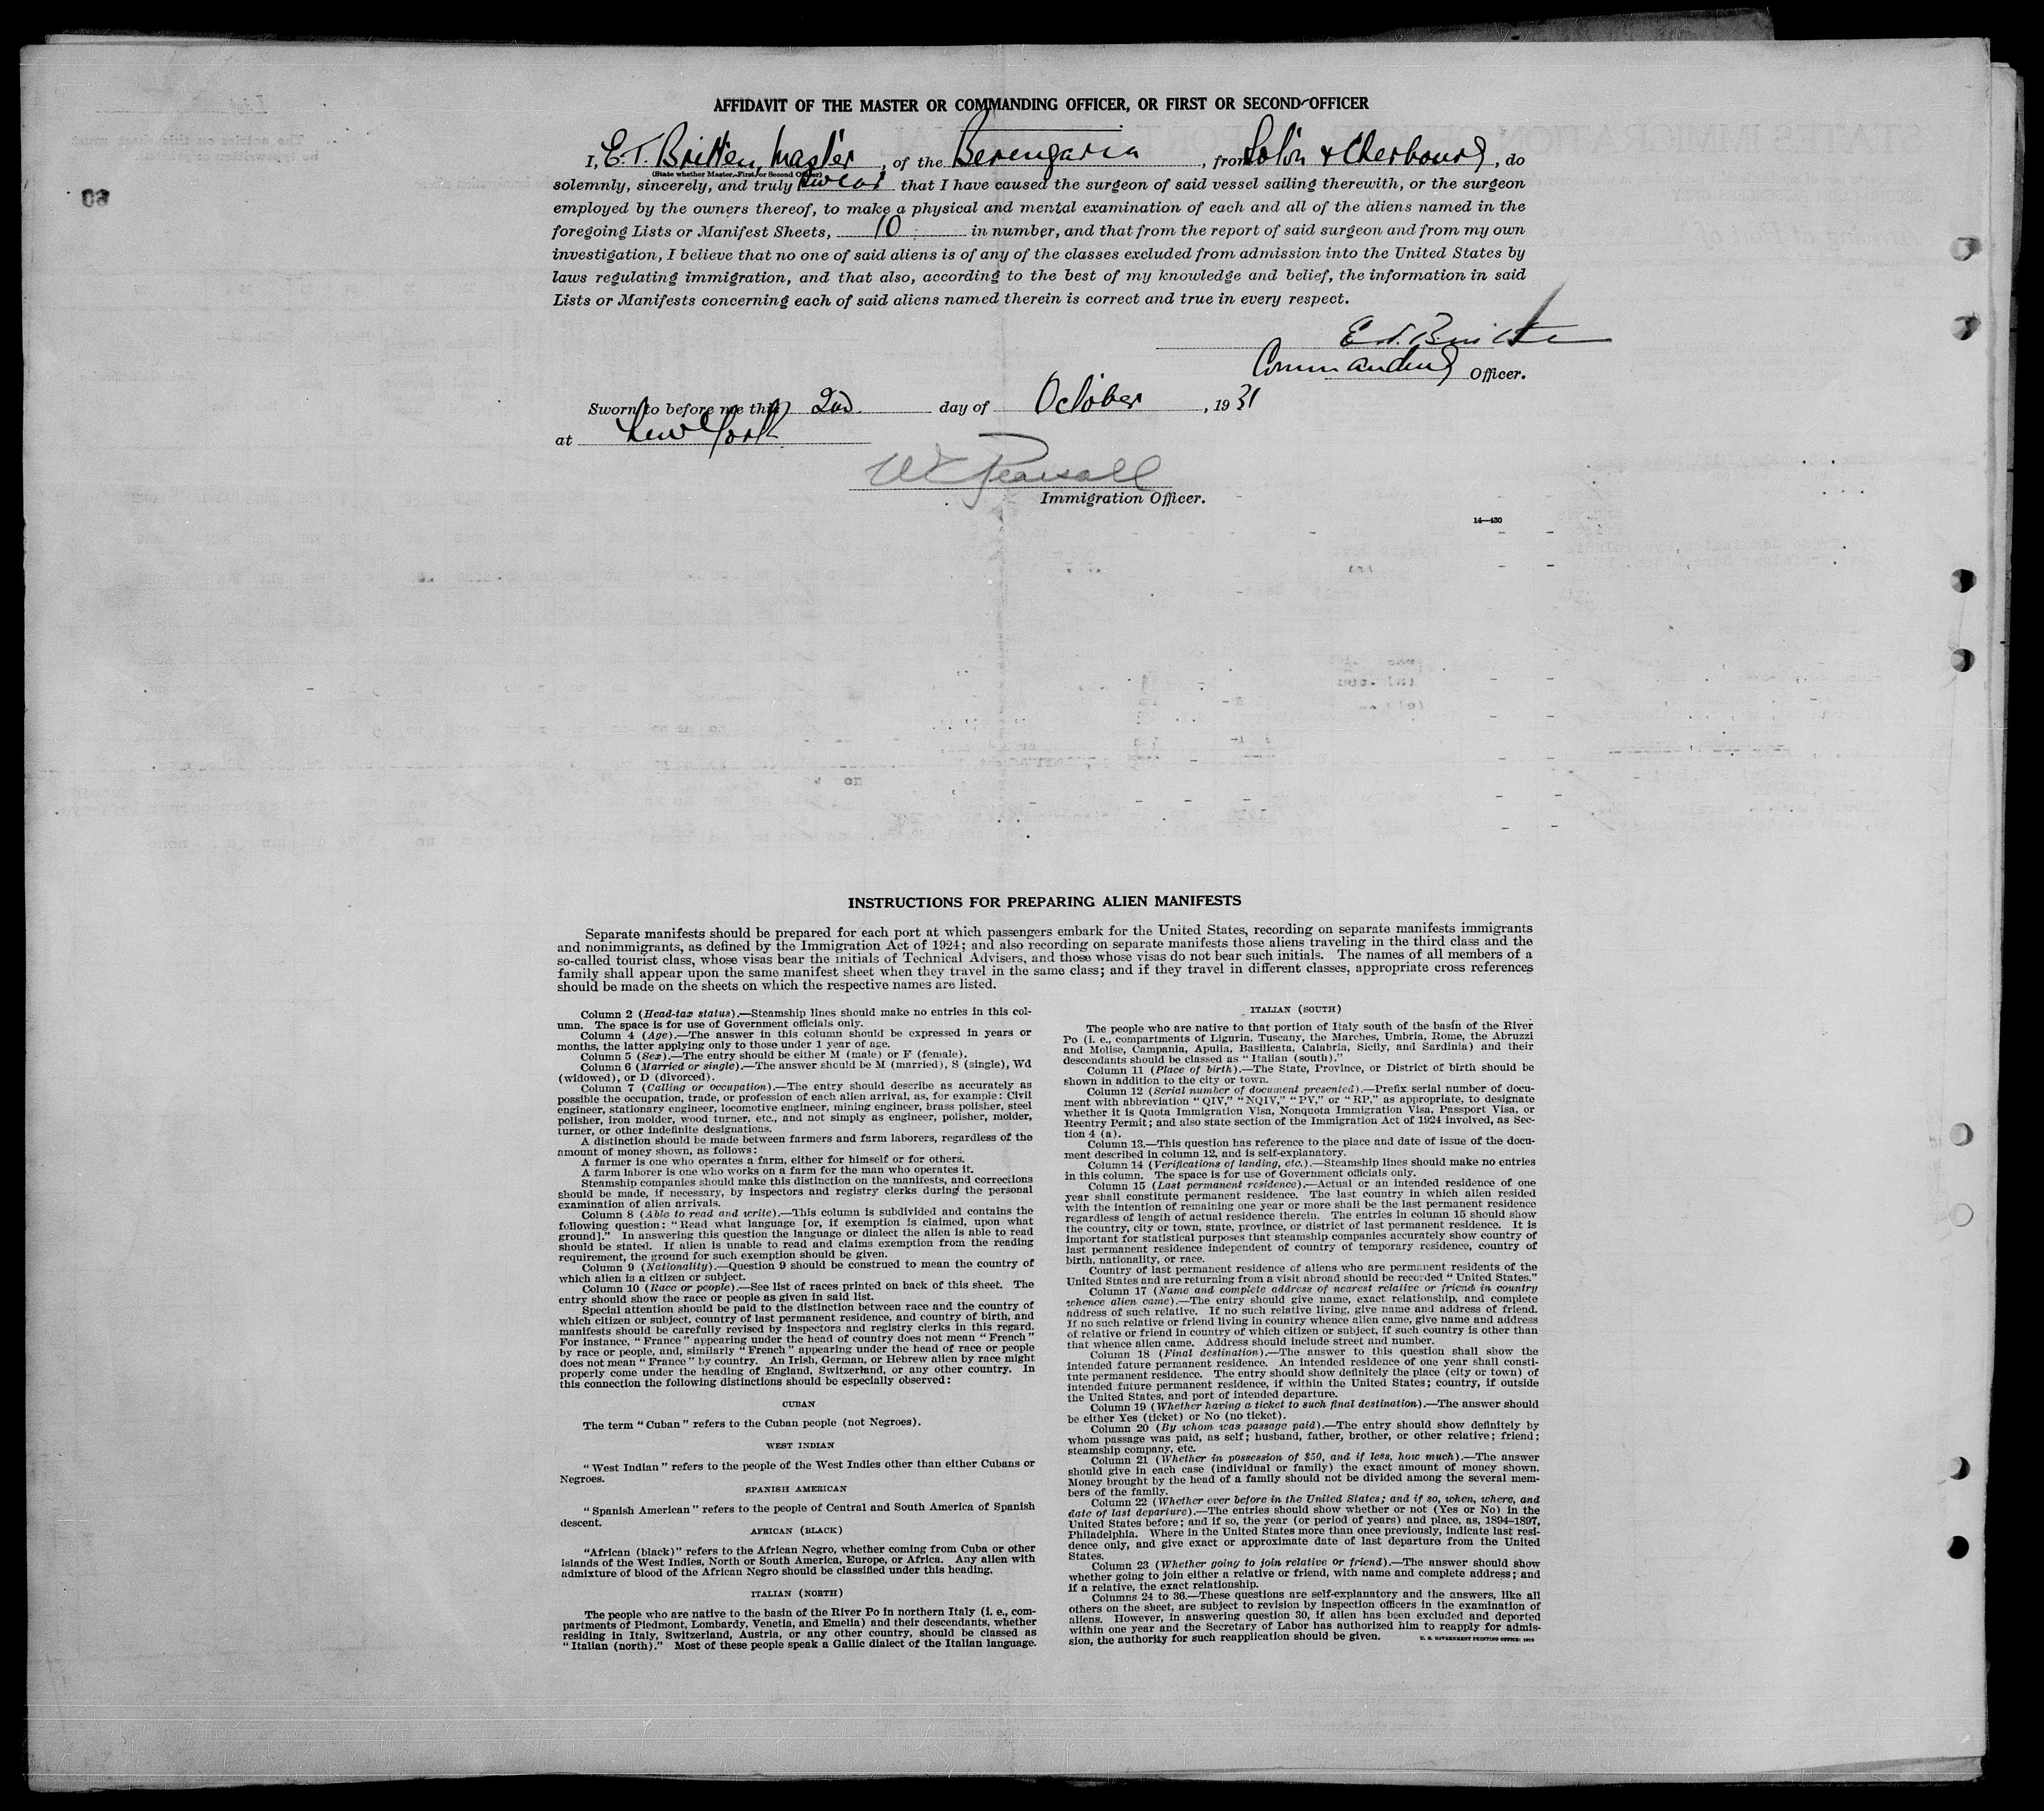 AFFIDAVIT OF THE MASTER OR COMMANDING OFFICER, OR FIRST OR SECOND OFFICER
I, E.T. Britten, Master, of the Berengaria, from Soton & Cherbourg, do
(State whether Master, First, or Second Officer)
solemnly, sincerely, and truly swear that I have caused the surgeon of said vessel sailing therewith, or the surgeon
employed by the owners thereof, to make a physical and mental examination of each and all of the aliens named in the
foregoing Lists or Manifest Sheets, 10 in number, and that from the report of said surgeon and from my own
investigation, I believe that no one of said aliens is of any of the classes excluded from admission into the United States by
laws regulating immigration, and that also, according to the best of my knowledge and belief, the information in said
Lists or Manifests concerning each of said aliens named therein is correct and true in every respect.
E.T. Britten
Commanding Officer.
Sworn to before me this 2nd day of October, 1931
at New York
W Pearsall
Immigration Officer.
14—430
INSTRUCTIONS FOR PREPARING ALIEN MANIFESTS
Separate manifests should be prepared for each port at which passengers embark for the United States, recording on separate manifests immigrants
and nonimmigrants, as defined by the Immigration Act of 1924; and also recording on separate manifests those aliens traveling in the third class and the
so-called tourist class, whose visas bear the initials of Technical Advisers, and those whose visas do not bear such initials. The names of all members of a
family shall appear upon the same manifest sheet when they travel in the same class; and if they travel in different classes, appropriate cross references
should be made on the sheets on which the respective names are listed.
Column 2 (Head-tax status).—Steamship lines should make no entries in this col-
umn. The space is for use of Government officials only.
Column 4 (Age).—The answer in this column should be expressed in years or
months, the latter applying only to those under 1 year of age.
Column 5 (Sex).—The entry should be either M (male) or F (female).
Column 6 (Married or single).—The answer should be M (married), S (single), Wd
(widowed), or D (divorced).
Column 7 (Calling or occupation).—The entry should describe as accurately as
possible the occupation, trade, or profession of each alien arrival, as, for example: Civil
engineer, stationary engineer, locomotive engineer, mining engineer, brass polisher, steel
polisher, iron molder, wood turner, etc., and not simply as engineer, polisher, molder,
turner, or other indefinite designations.
A distinction should be made between farmers and farm laborers, regardless of the
amount of money shown, as follows:
A farmer is one who operates a farm, either for himself or for others.
A farm laborer is one who works on a farm for the man who operates it.
Steamship companies should make this distinction on the manifests, and corrections
should be made, if necessary, by inspectors and registry clerks during the personal
examination of alien arrivals.
Column 8 (Able to read and write).—This column is subdivided and contains the
following question: "Read what language [or, if exemption is claimed, upon what
ground]." In answering this question the language or dialect the alien is able to read
should be stated. If alien is unable to read and claims exemption from the reading
requirement, the ground for such exemption should be given.
Column 9 (Nationality).—Question 9 should be construed to mean the country of
which alien is a citizen or subject.
Column 10 (Race or people).—See list of races printed on back of this sheet. The
entry should show the race or people as given in said list.
Special attention should be paid to the distinction between race and the country of
which citizen or subject, country of last permanent residence, and country of birth, and
manifests should be carefully revised by inspectors and registry clerks in this regard.
For instance, "France" appearing under the head of country does not mean "French"
by race or people, and, similarly "French" appearing under the head of race or people
does not mean "France" by country. An Irish, German, or Hebrew alien by race might
properly come under the heading of England, Switzerland, or any other country. In
this connection the following distinctions should be especially observed:
CUBAN
The term "Cuban" refers to the Cuban people (not Negroes).
WEST INDIAN
"West Indian" refers to the people of the West Indies other than either Cubans or
Negroes.
SPANISH AMERICAN
"Spanish American" refers to the people of Central and South America of Spanish
descent.
AFRICAN (BLACK)
"African (black)" refers to the African Negro, whether coming from Cuba or other
islands of the West Indies, North or South America, Europe, or Africa. Any alien with
admixture of blood of the African Negro should be classified under this heading.
ITALIAN (NORTH)
The people who are native to the basin of the River Po in northern Italy (i. e., com-
partments of Piedmont, Lombardy, Venetia, and Emelia) and their descendants, whether
residing in Italy, Switzerland, Austria, or any other country, should be classed as
"Italian (north)." Most of these people speak a Gallic dialect of the Italian language.
ITALIAN (SOUTH)
The people who are native to that portion of Italy south of the basin of the River
Po (i. e., compartments of Liguria, Tuscany, the Marches, Umbria, Rome, the Abruzzi
and Molise, Campania, Apulia, Basilicata, Calabria, Sicily, and Sardinia) and their
descendants should be classed as "Italian (south)."
Column 11 (Place of birth).—The State, Province, or District of birth should be
shown in addition to the city or town.
Column 12 (Serial number of document presented).—Prefix serial number of docu-
ment with abbreviation "QIV," "NQIV," "PV," or "RP," as appropriate, to designate
whether it is Quota Immigration Visa, Nonquota Immigration Visa, Passport Visa, or
Reentry Permit; and also state section of the Immigration Act of 1924 involved, as Sec-
tion 4 (a).
Column 13.—This question has reference to the place and date of issue of the docu-
ment described in column 12, and is self-explanatory.
Column 14 (Verifications of landing, etc.).—Steamship lines should make no entries
in this column. The space is for use of Government officials only.
Column 15 (Last permanent residence).—Actual or an intended residence of one
year shall constitute permanent residence. The last country in which alien resided
with the intention of remaining one year or more shall be the last permanent residence
regardless of length of actual residence therein. The entries in column 15 should show
the country, city or town, state, province, or district of last permanent residence. It is
important for statistical purposes that steamship companies accurately show country of
last permanent residence independent of country of temporary residence, country of
birth, nationality, or race.
Country of last permanent residence of aliens who are permanent residents of the
United States and are returning from a visit abroad should be recorded "United States."
Column 17 (Name and complete address of nearest relative or friend in country
whence alien came).—The entry should give name, exact relationship, and complete
address of such relative. If no such relative living, give name and address of friend.
If no such relative or friend living in country whence alien came, give name and address
of relative or friend in country of which citizen or subject, if such country is other than
that whence alien came. Address should include street and number.
Column 18 (Final destination).—The answer to this question shall show the
intended future permanent residence. An intended residence of one year shall consti-
tute permanent residence. The entry should show definitely the place (city or town) of
intended future permanent residence, if within the United States; country, if outside
the United States, and port of intended departure.
Column 19 (Whether having a ticket to such final destination).—The answer should
be either Yes (ticket) or No (no ticket).
Column 20 (By whom was passage paid).—The entry should show definitely by
whom passage was paid, as self; husband, father, brother, or other relative; friend;
steamship company, etc.
Column 21 (Whether in possession of $50, and if less, how much).—The answer
should give in each case (individual or family) the exact amount of money shown.
Money brought by the head of a family should not be divided among the several mem-
bers of the family.
Column 22 (Whether ever before in the United States; and if so, when, where, and
date of last departure).—The entries should show whether or not (Yes or No) in the
United States before; and if so, the year (or period of years) and place, as, 1894–1897,
Philadelphia. Where in the United States more than once previously, indicate last resi-
dence only, and give exact or approximate date of last departure from the United
States.
Column 23 (Whether going to join relative or friend).—The answer should show
whether going to join either a relative or friend, with name and complete address; and
if a relative, the exact relationship.
Columns 24 to 36.—These questions are self-explanatory and the answers, like all
others on the sheet, are subject to revision by inspection officers in the examination of
aliens. However, in answering question 30, if alien has been excluded and deported
within one year and the Secretary of Labor has authorized him to reapply for admis-
sion, the authority for such reapplication should be given. U. S. GOVERNMENT PRINTING OFFICE: